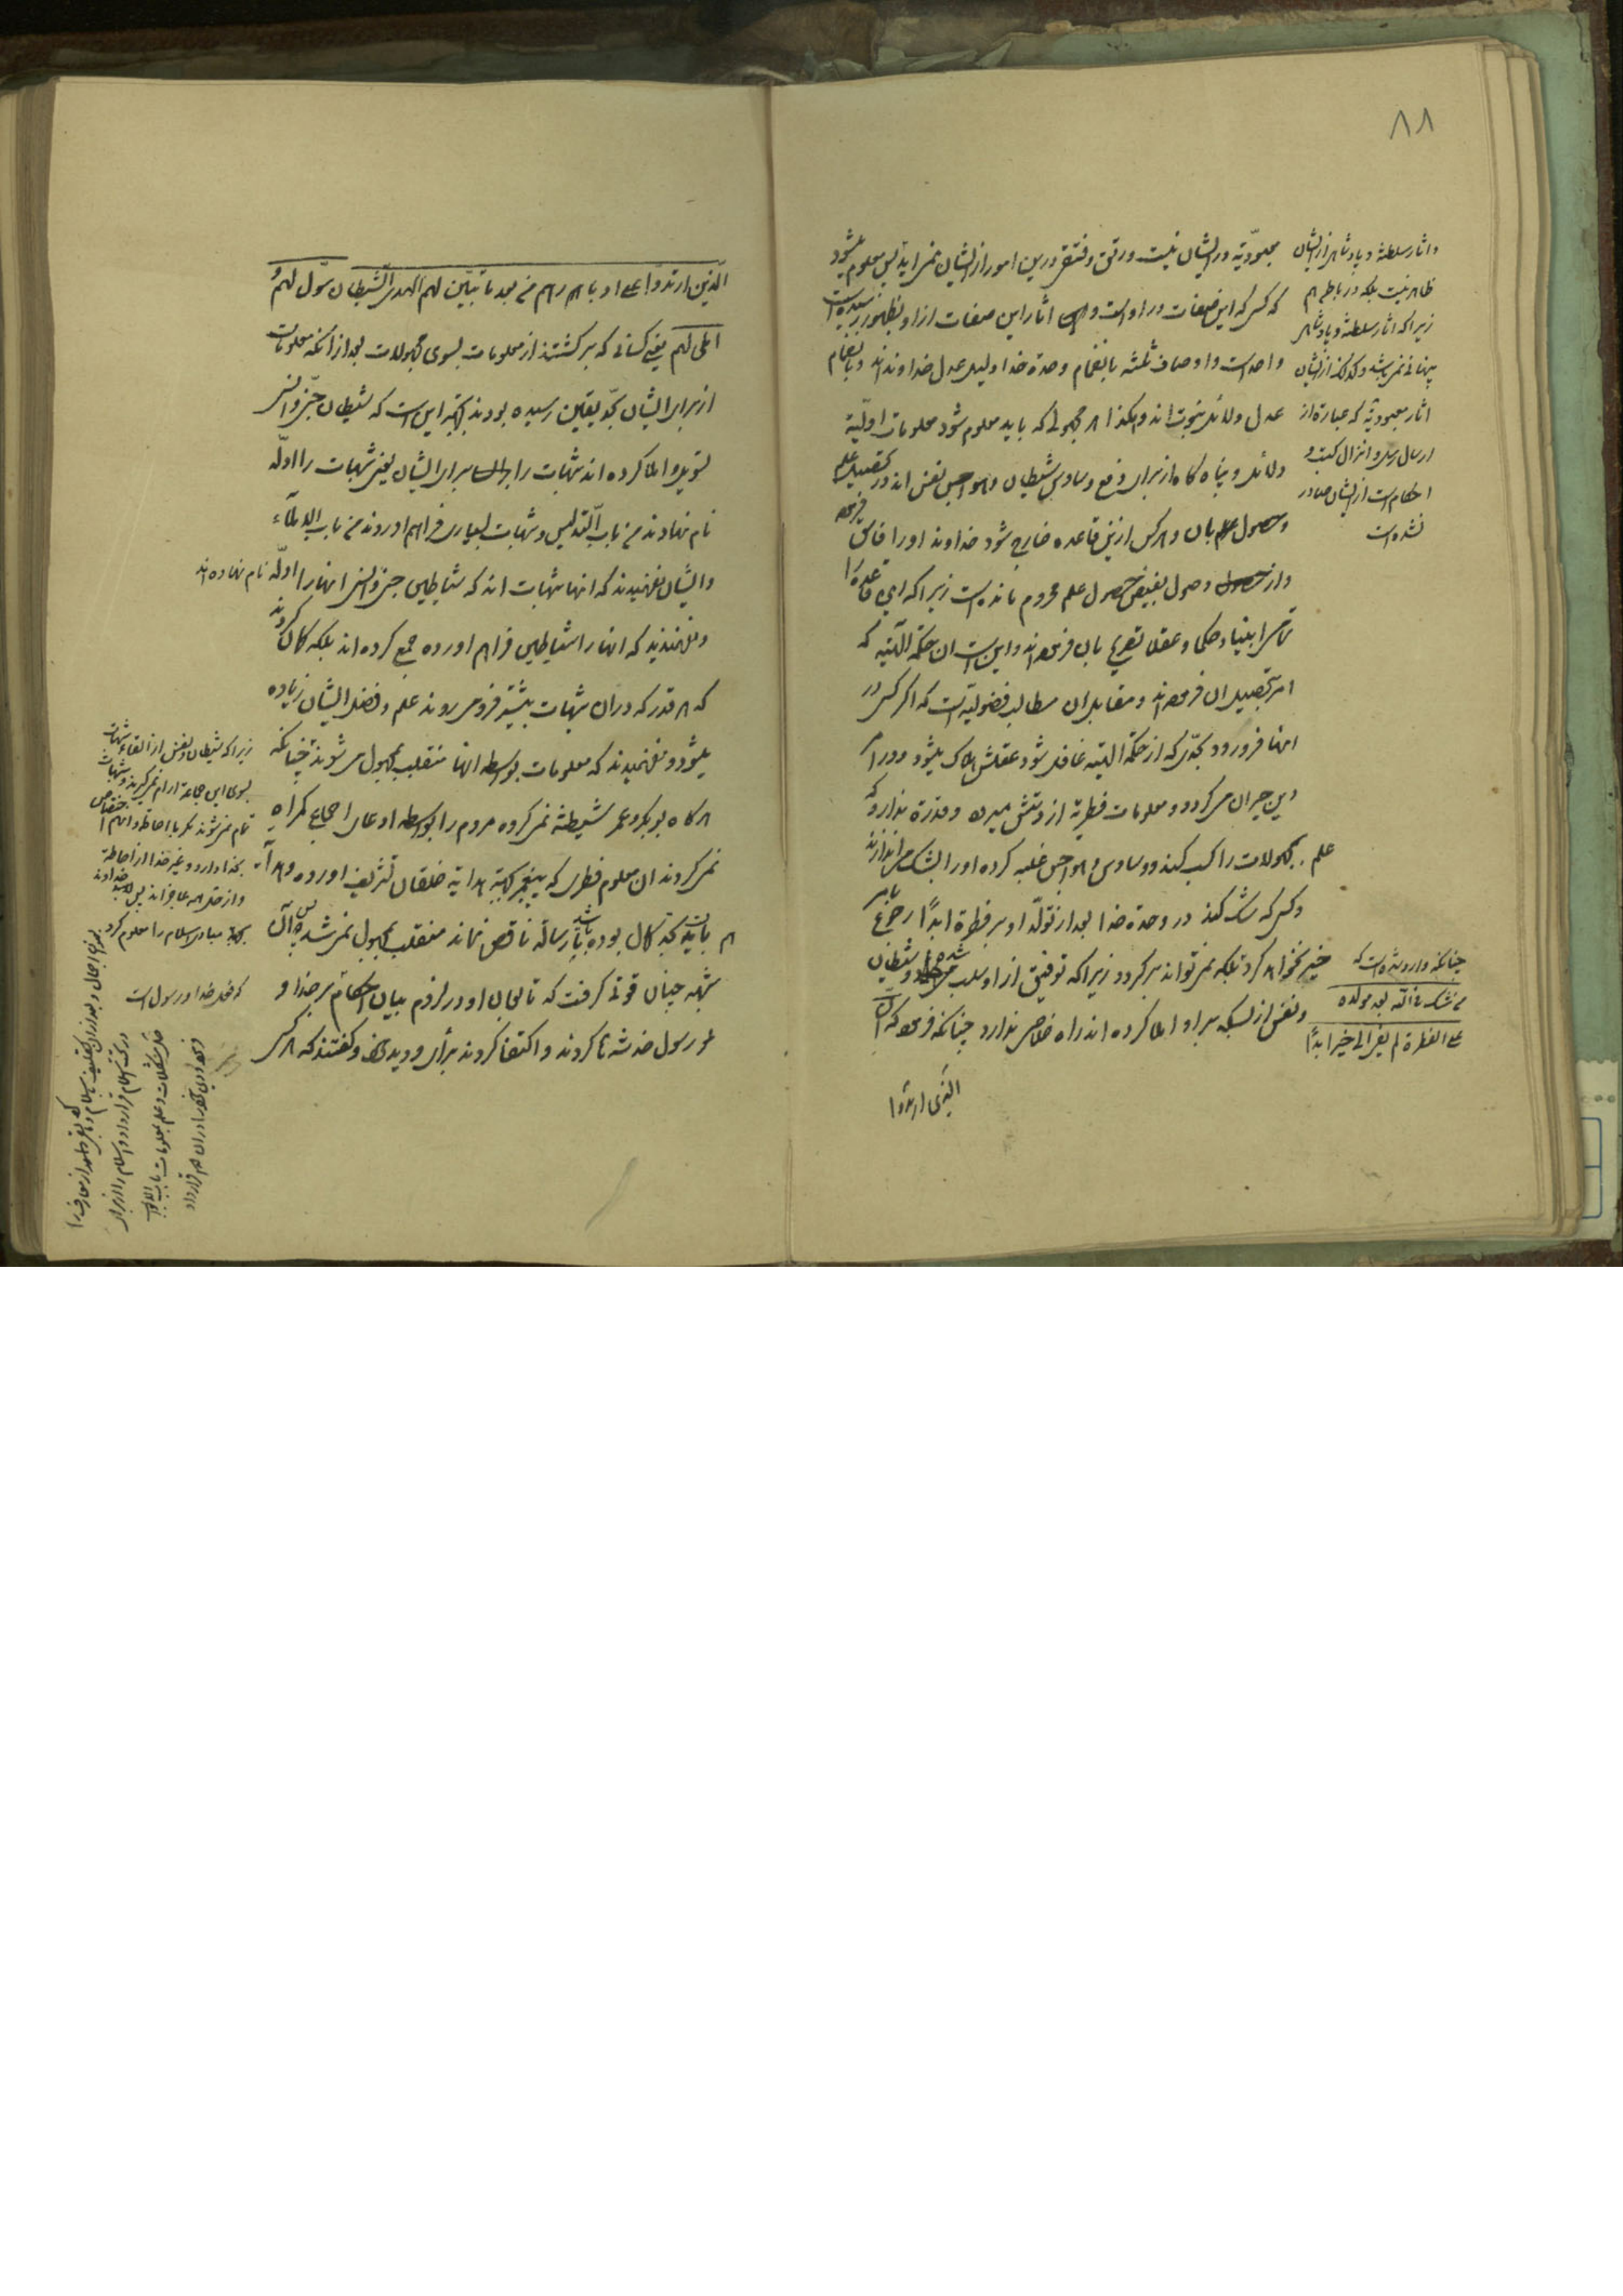 ۸۸
معبودیّة در ایشان نیست و رتق و فتق درین امور از ایشان نمی‌اید پس معلوم میشود
که کسی که این صفات در او است و اثار این صفات از او بظهور رسیده است
واحد است و اوصاف ثلثه بانضمام وحدة خدا دلیل عدل خداوند اند و بانضمام
عدل دلائل نبوت اند و هکذا هر مجهولی که باید معلوم شود معلومات اولیّة
دلائل و پناه گاه از برای دفع وساوس شیطان و هواجس نفس اند در تحصیل علم
و حصول بان و هر کس ازین قاعده خارج شود خداوند او را فاسق فرموده
و از وصول بفیض حصول علم محروم مانده است زیرا که این قاعده را
تمامی انبیاء و حکما و عقلا تصریح بان فرموده اند و این است ان حکمة الهیّه که
امر بتحصیل ان فرموده اند و مقابل ان مطالب فضولیّه است که اگر کسی در
انها فرو رود بحدّی که از حکمة الهیّه غافل شود عقلش هلاک میشود و در امر
دین حیران می‌گردد و معلومات فطریّة از دستش میرود و قدرة ندارد که
علم بمجهولات را کسب کند و وساوس و هواجس غلبه کرده او را بشک می‌اندازند
و کسی که شک کند در وحدة خدا بعد از تولّد او بر فطرة ابدًا رجوع بامر
خیر نخواهد کرد بلکه نمی‌تواند برگردد زیرا که توفیق از او سلب شده و شیطان
و نفس از بسکه بر او املا کرده اند راه خلاصی ندارد چنانکه فرموده که انّ
الذین ارتدّوا
و اثار سلطنة و پادشاهی از ایشان
ظاهر نیست بلکه در باطن هم
زیرا که اثار سلطنة و پادشاهی
پنهانی نمی‌باشد و کذلک از ایشان
اثار معبودیّة که عبارة از
ارسال رسل و انزال کتب و
احکام است از ایشان صادر
نشده است
چنانکه وارد شده است که
من شک فی الله بعد مولده
علی الفطرة لم یفئ الی خیر ابدًا
الّذین ارتدّوا علی ادبارهم من بعد ما تبیّن لهم الهدی الشّیطان سوّل لهم و
املی لهم یعنی کسانی که برگشتند از معلومات بسوی مجهولات بعد از انکه معلومات
از برای ایشان بحدّ یقین رسیده بودند بجهة این است که شیطان جنّ و انس
تسویل و املا کرده اند شبهات را برای ایشان یعنی شبهات را ادلّه
نام نهادند من باب التدلیس و شبهات بسیاری فراهم اوردند من باب الاملاء
و ایشان نفهمیدند که انها شبهات اند که شیاطین جن و انس انها را ادلّه نام نهاده اند
و نفهمیدند که انها را شیاطین فراهم اورده جمع کرده اند بلکه گمان کردند
که هر قدر که در ان شبهات بیشتر فرو می‌روند علم و فضل ایشان زیاده
میشود و نفهمیدند که معلومات بواسطه انها منقلب بمجهول می‌شوند چنانکه
هر گاه ابوبکر و عمر شیطنة نمی‌کردند و مردم را بواسطه ادعای اجماع گمراه
نمی‌کردند ان معلوم فطری که پیغمبر بجهة هدایة خلقان تشریف اورده و هدایة
هم بایست بحد کمال بوده باشد تا رسالة ناقص نماند منقلب بمجهول نمی‌شد پس ان
شبهه چنان قوتی گرفت که تابعان او در لزوم بیان احکام بر خدا و
رسول خدشه ها کردند و اکتفا کردند برأی و دید خود و گفتند که هر کس
زیرا که شیطان و نفس از القاء شبهات
بسوی این جماعة ارام نمی‌گیرند و شبهات
تمام نمی‌شوند مگر با احاطه و ان هم اختصاص
بخدا دارد و غیر خدا از احاطة
و از حلّ همه عاجزاند پس باید خداوند
بجهة مبادی اسلام را معلوم کرد
که فعل خدا و رسول است